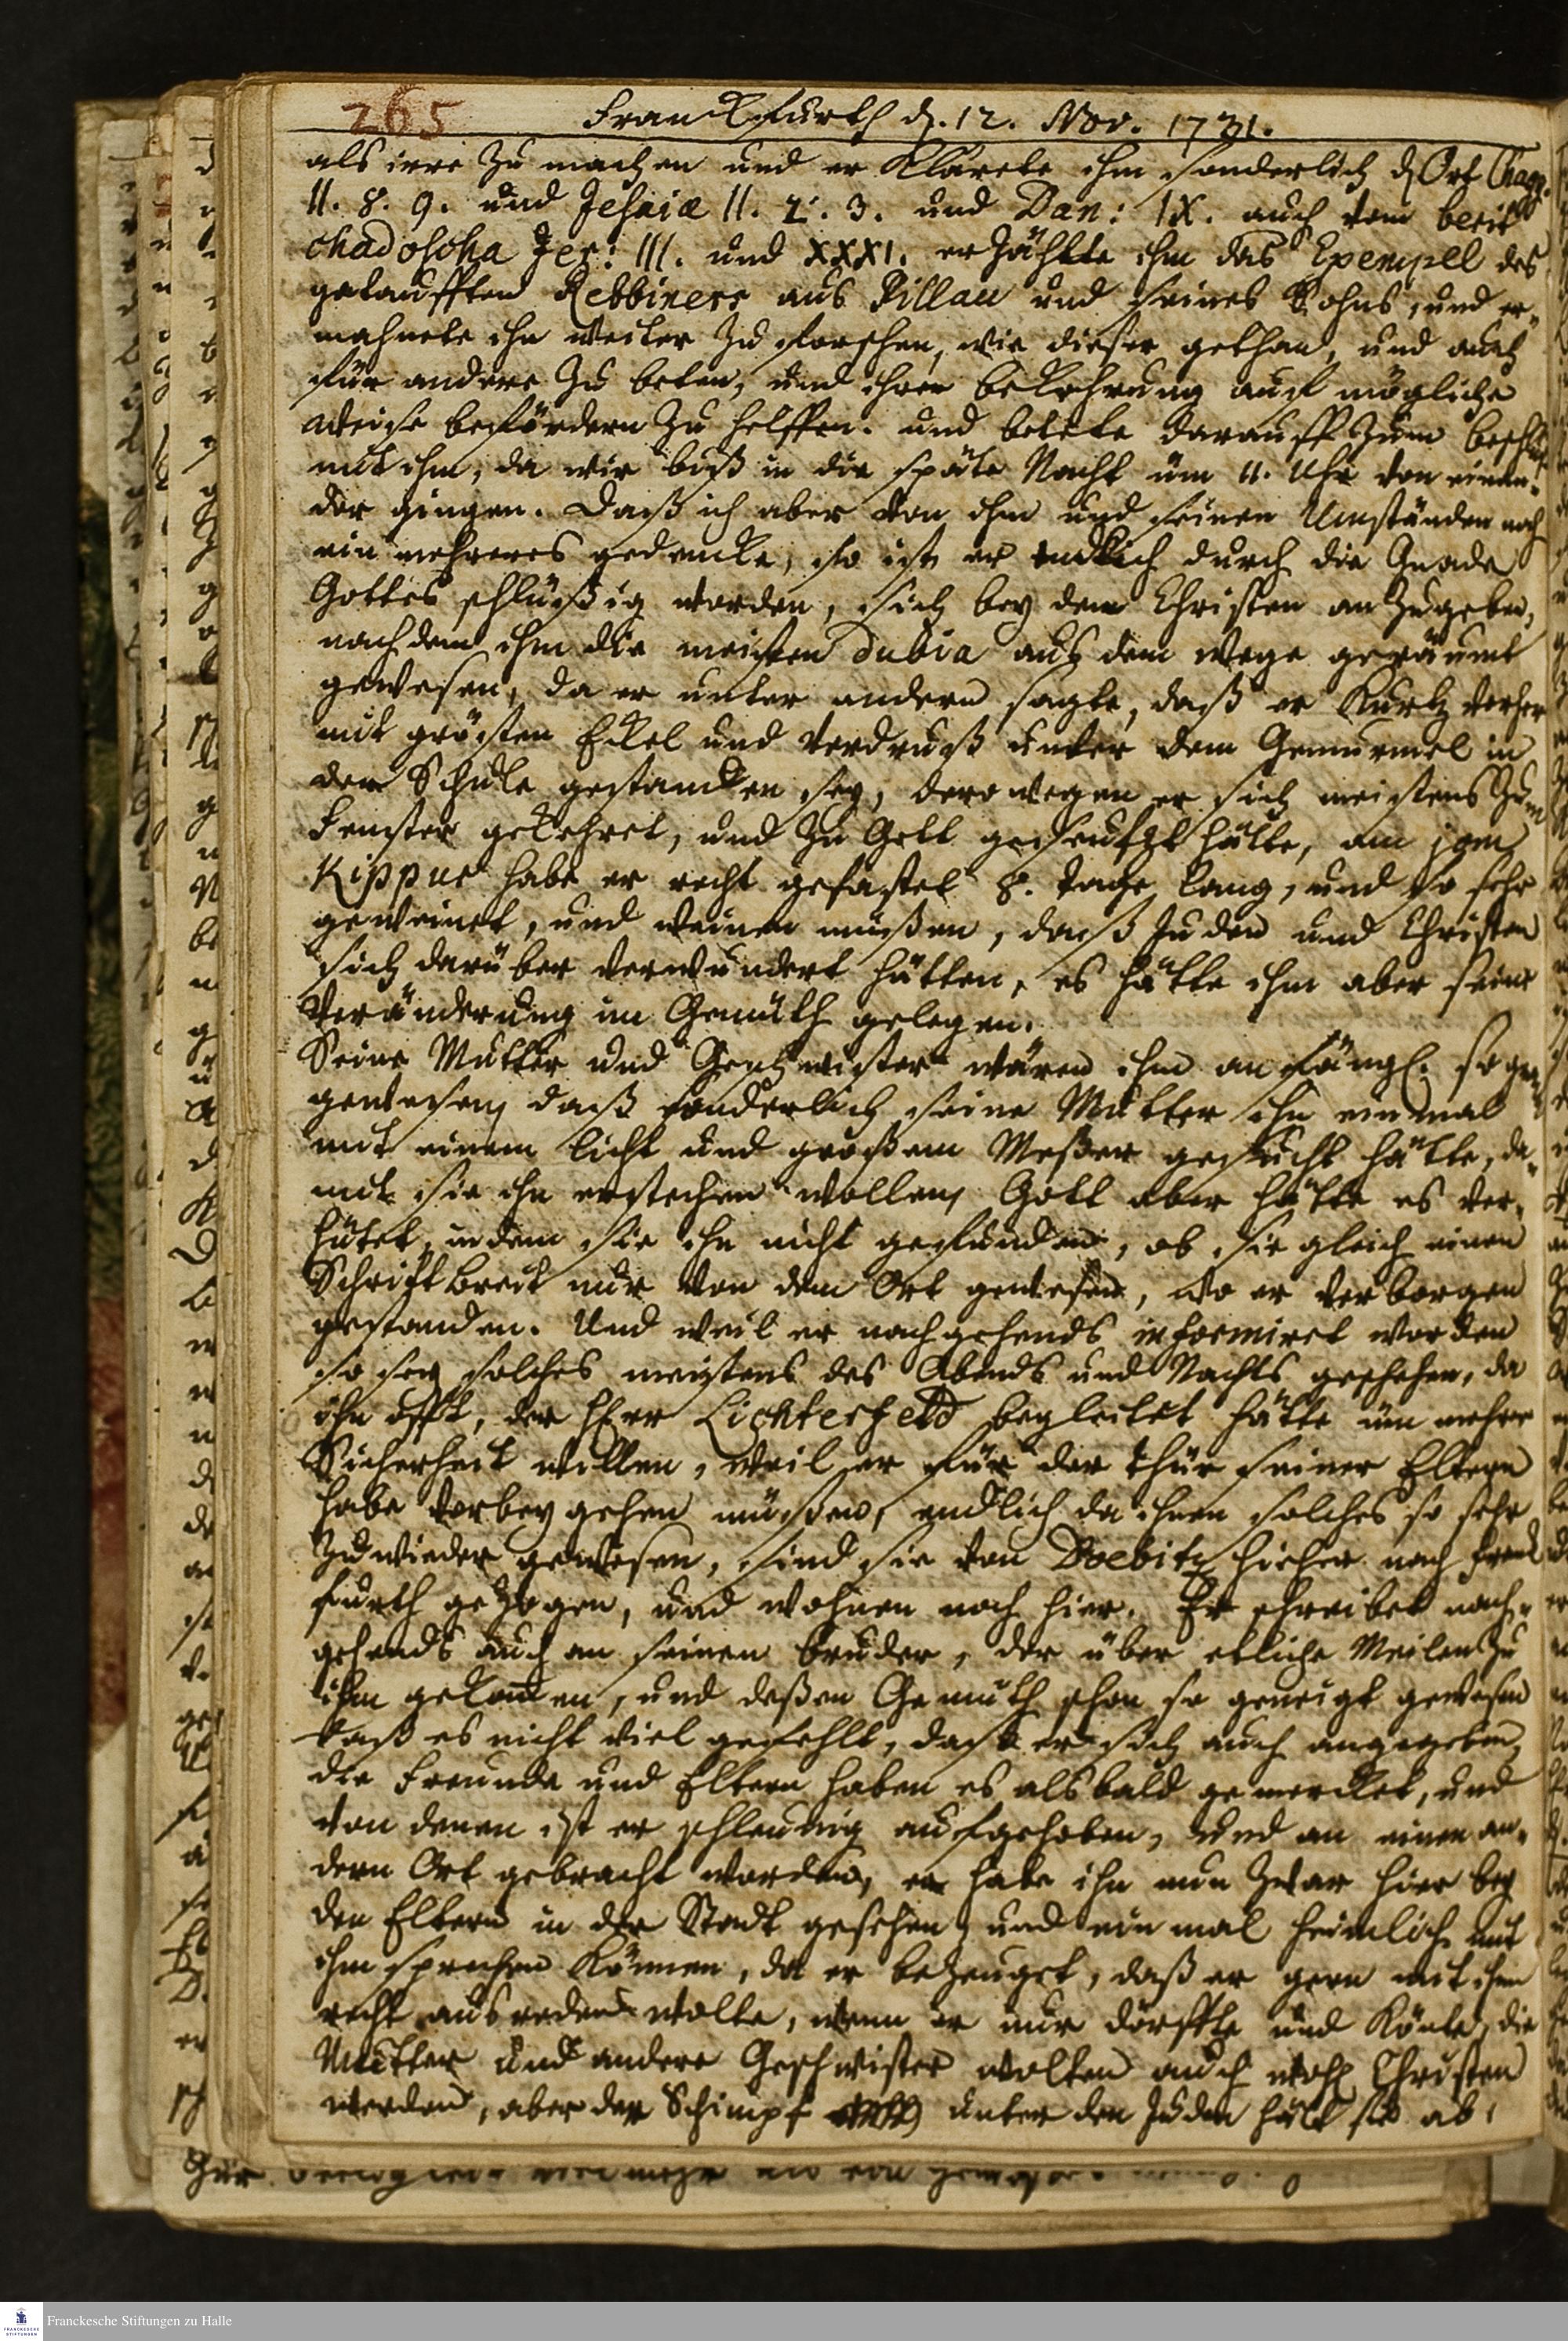 265 Franckfurth d. 12. Nov. 1731.
als irre zu machen und erklärete ihm sonderlich d. Ort Hagg.
II. 8. 9. und Jesaiæ II. 2. 3. und Dan: IX. auch vom berit
chadoscha Jer: III. und XXXI. erzählte ihm das Exempell des
getaufften Rebbiners aus Pillau und seines Sohns, und er-
mahnete ihn weiter zu forschen, wie dieser gethan, und auch
für andere zu beten, und ihrer bekehrung auf mögliche
weise befördern zu helffen. und betete darauff zum beschluß
mit ihm, da wir biß in die späte Nacht um 11. Uhr von einan-
der gingen. Daß ich aber von ihm und seinen Umständen noch
ein mehreres gedencke, so ist er endlich durch die Gnade
Gottes schlüßig worden, sich bey den Christen anzugeben,
nach dem ihm die meisten dubia aus dem wege geräumt
gewesen, da er unter andern sagte, daß er kurtz vorher
mit grösten Eckel und verdruß unter dem Gemurmel in
der Schule gestanden sey, derowegen er sich meistens zum
Fenster gekehret, und zu Gott geseufzt hätte, am jom
Kippur habe er recht gefastet 8. tage lang, und so sehr
geweinet, und weinen müßen, daß Juden und Christen
sich darüber verwundert hätten, es hätte ihm aber seine
Veränderung im Gemüth gelegen.
Seine Mutter und Geschwister wären ihm anfängl. so
gewesen, daß sonderlich seine Mutter ihn einmal
mit einem licht und großem Meßer gesucht hätte, da-
mit sie ihn erstechen wollen, Gott aber hätte es ver-
hütet, indem sie ihn nicht gefunden, ob sie gleich einen
Schritt breit nur von dem Ort gewesen, wo er verborgen
gestanden. Und weil er nachgehends informiret worden
so sey solches meistens des Abends und Nachts geschehen, da
ihn offt, der Herr Lichterfeld begleitet hätte um mehrer
Sicherheit willen, weil er für der thür seiner Eltern
habe vorbey gehen müßen, endlich da ihnen solches so sehr
zuwieder gewesen, sind sie von Doebitz hieher nach Franck
furth gezogen, und wohnen noch hier. Er schreibet nach-
gehends auch an seinen bruder, der über etliche Meilen zu
ihm gekommen, und deßen Gemüth schon so geneigt gewesen
daß es nicht viel gefehlt, daß er sich auch angegeben,
die Freunde und Eltern haben es alsbald gemercket, und
von denen ist er schleunig aufgehoben, und an einen an-
dern Ort gebracht worden, er habe ihn nun zwar hier bey
den Eltern in der Stadt gesehen, und ein mal heimlich mit
ihm sprechen können, da er bezeuget, daß er gern mit ihm
recht ausreden wolte, wenn er nur dörffte und könte, die
Mutter und andere Geschwister wolten auch wohl Christen
werden, aber der Schimpf unter den Juden hält sie ab,
Franckesche Stiftungen zu Halle